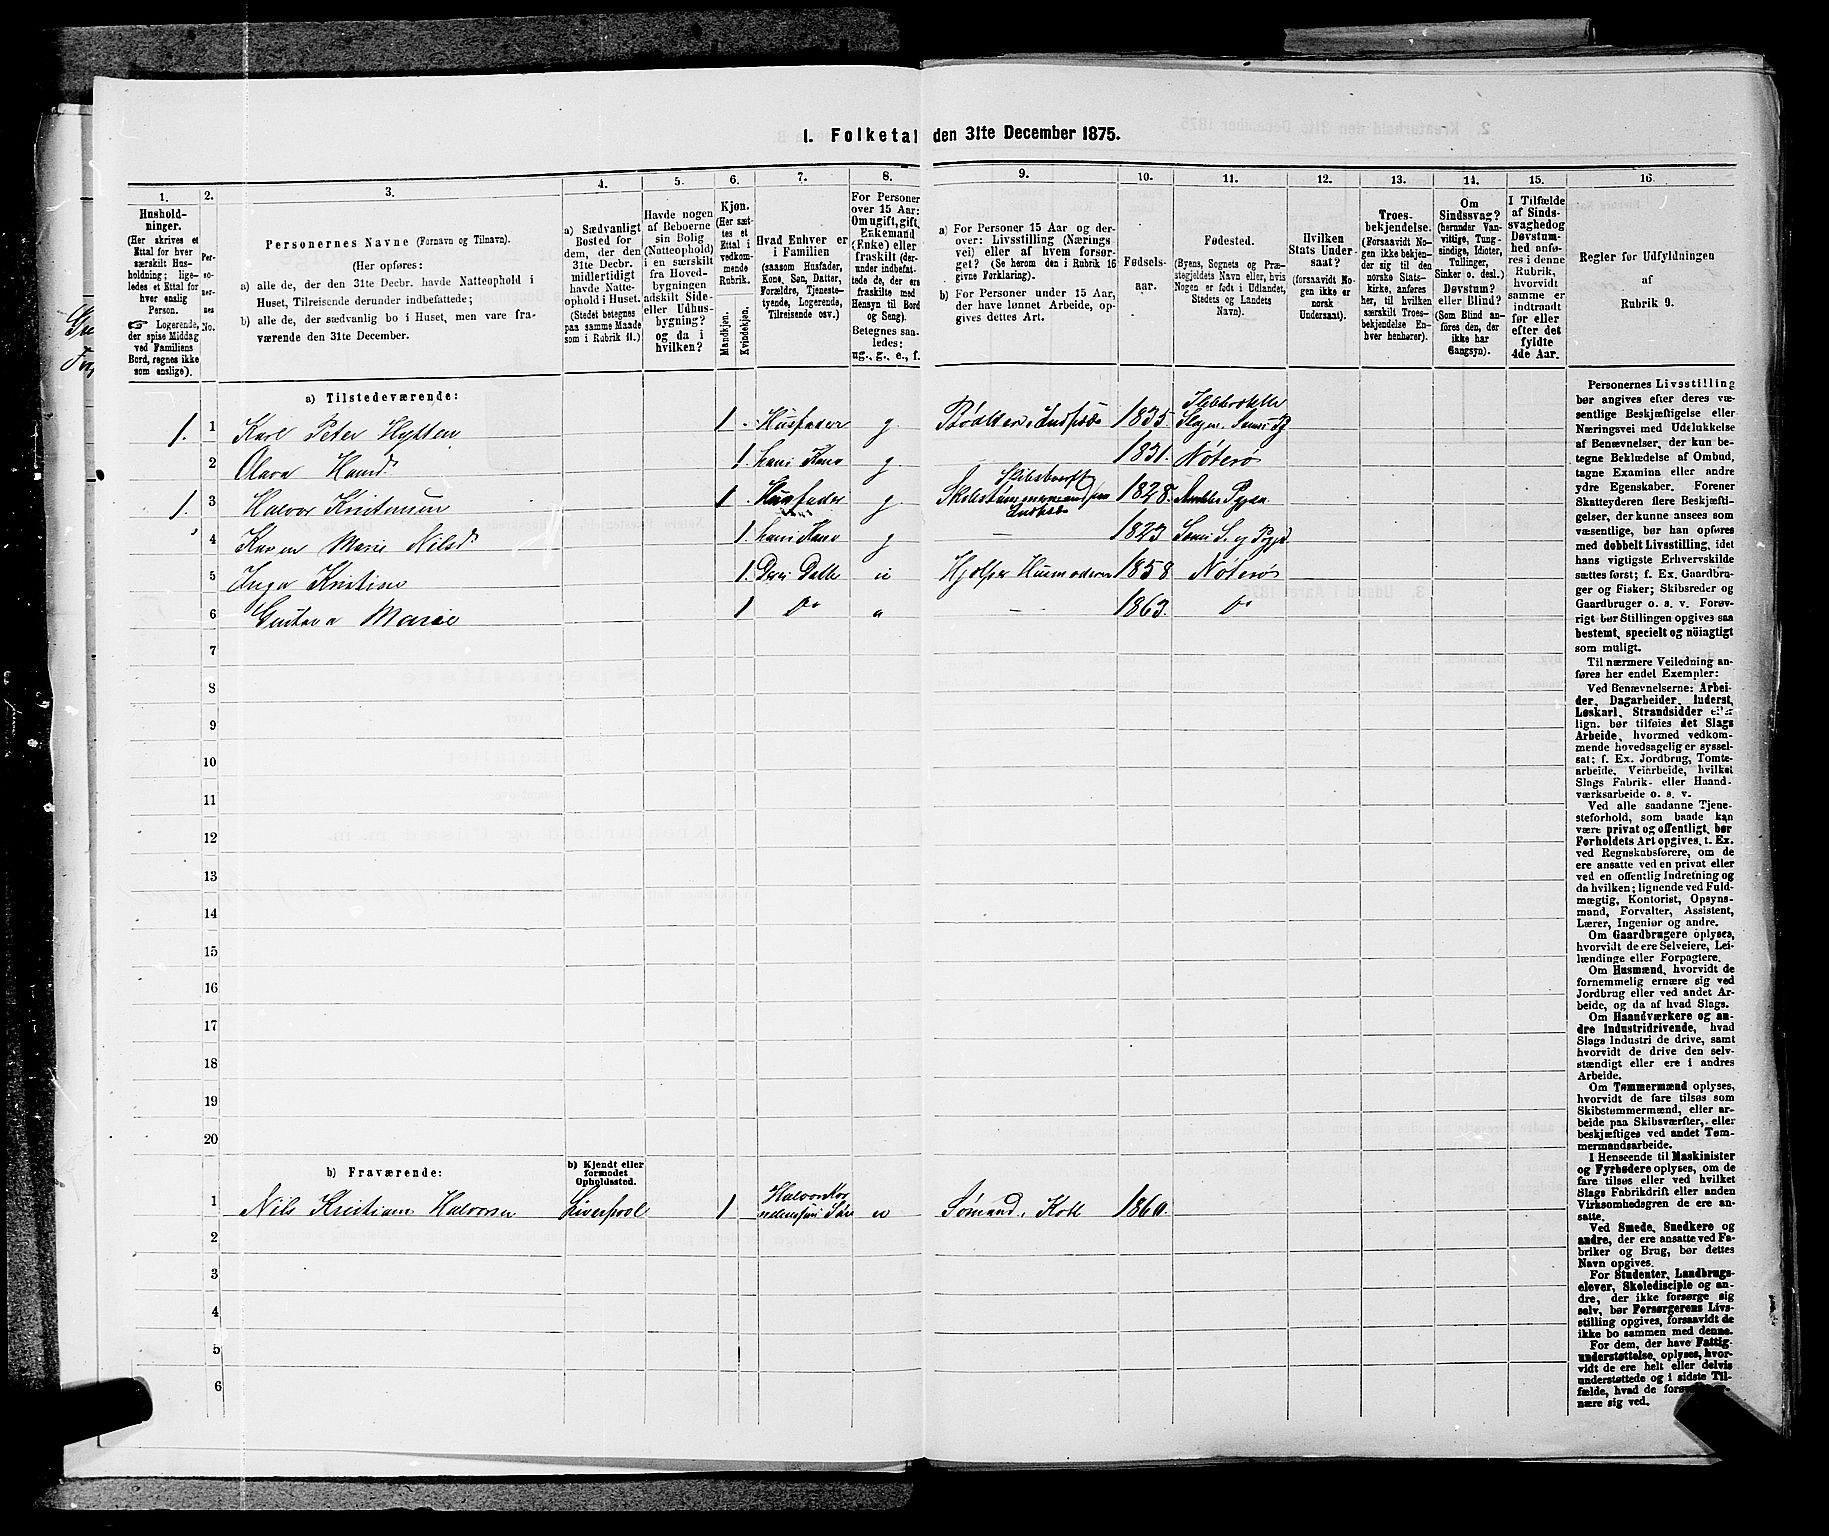 I. Folketal den 31te December 1875.
1. 2. 3. 4. 5. 6. 7. 8. 9. 10. 11. 12. 13. 14. 15. 16.
Hushold-
ninger.
(Her skrives et
Ettal for hver
særskilt Hus-
holdning; lige-
ledes et Ettal for
hver enslig
Person.
☞ Logerende,
der spise Middag
ved Familiens
Bord, regnes ikke
som enslige).
Per-
so-
ner-
nes
No.
Personernes Navne (Fornavn og Tilnavn).
(Her opføres:
a) alle de, der den 31te Decbr. havde Natteophold i
Huset, Tilreisende derunder indbefattede;
b) alle de, der sædvanlig bo i Huset, men vare fra-
værende den 31te December.
a) Sædvanligt
Bosted for
dem, der den
31te Decbr.
midlertidigt
havde Natte-
ophold i Huset.
(Stedet betegnes
paa samme Maade
som i Rubrik 11.)
Havde nogen
af Beboerne
sin Bolig
(Natteophold)
i en særskilt
fra Hoved-
bygningen
adskilt Side-
eller Udhus-
bygning?
og da i
hvilken?
Kjøn.
(Her sæt-
tes et
Ettal i
vedkom-
mende
Rubrik.
Mandkjøn.
Kvindekjøn.
Hvad Enhver er
i Familien
(saasom Husfader,
Kone, Søn, Datter,
Forældre, Tjeneste-
tyende, Logerende,
Tilreisende osv.)
For Personer
over 15 Aar:
Om ugift, gift,
Enkemand
(Enke) eller
fraskilt (der-
under indbefat-
tede de, der ere
fraskilte med
Hensyn til Bord
og Seng).
Betegnes saa-
ledes:
ug., g., e., f.
a) For Personer 15 Aar og der-
over: Livsstilling (Nærings-
vei) eller af hvem forsør-
get? (Se herom den i Rubrik 16
givne Forklaring).
b) For Personer under 15 Aar,
der have lønnet Arbeide, op-
gives dettes Art.
Fødsels-
aar.
Fødested.
(Byens, Sognets og Præ-
stegjeldets Navn eller, hvis
Nogen er født i Udlandet,
Stedets og Landets
Navn).
Hvilken
Stats Under-
saat?
(forsaavidt No-
gen ikke er
norsk
Undersaat).
Troes-
bekjendelse.
(Forsaavidt No-
gen ikke bekjen-
der sig til den
norske Stats-
kirke, anføres
her, til hvilken
særskilt Troes-
bekjendelse En-
hver henhører).
Om
Sindssvag?
(herunder Van-
vittige, Tung-
sindige, Idioter,
Tullinger,
Sinker o. desl.)
Døvstum?
eller Blind?
(Som Blind an-
føres den, der
ikke har
Gangsyn).
I Tilfælde
af Sinds-
svaghed og
Døvstum-
hed anfø-
res i denne
Rubrik,
hvorvidt
samme er
indtraadt
før eller
efter det
fyldte
4de Aar.
Regler for Udfyldningen
af
Rubrik 9.
a) Tilstedeværende:
1. 1 Karl Peter Hytten 1 Husfader g 1835.
2 Olava Hansd. 1 hans Kone g 1831. Nøterø
1. 3 Halvor Kristensen 1 Husfader g 1828.
4 Karen Marie Nilsd. 1 hans Kone g — 1823
5 Inga Kristine 1 Deres Datter u Hjælper Husmoderen 1858 Nøterø
6 Gustava Marie 1 Do — 1863. Do
7
8
9
10
11
12
13
14
15
16
17
18
19
20
b) Fraværende:
b) Kjendt eller
formodet
Opholdssted.
1 Nils Kristian Halvorsen Liverpool 1 Sømand, Kok 1860.
2
3
4
5
6
Personernes Livsstilling
bør angives efter deres væ-
sentlige Beskjæftigelse eller
Næringsvei med Udelukkelse
af Benævnelser, der kun be-
tegne Beklædelse af Ombud,
tagne Examina eller andre
ydre Egenskaber. Forener
Skatteyderen flere Beskjæfti-
gelser, der kunne ansees som
væsentlige, bør han opføres
med dobbelt Livsstilling, idet
hans vigtigste Erhvervskilde
sættes først; f. Ex. Gaardbru-
ger og Fisker; Skibsreder og
Gaardbruger o. s. v. Forøv-
rigt bør Stillingen opgives saa
bestemt, specielt og nöiagtigt
som muligt.
Til nærmere Veiledning an-
føres her endel Exempler:
Ved Benævnelserne: Arbei-
der, Dagarbeider, Inderst,
Løskarl, Strandsidder eller
lign. bør tilføies det Slags
Arbeide, hvormed vedkom-
mende hovedsagelig er syssel-
sat; f. Ex. Jordbrug, Tomte-
arbeide, Veiarbeide, hvilket
Slags Fabrik- eller Haand-
værksarbeide o. s. v.
Ved alle saadanne Tjene-
steforhold, som baade kan
være privat og offentligt, bør
Forholdets Art opgives, t. Ex.
ved Regnskabsførere, om de
ere ansatte ved en privat eller
ved en offentlig Indretning og
da hvilken; lignende ved Fuld-
mægtig, Kontorist, Opsyns-
mand, Forvalter, Assistent,
Lærer, Ingeniør og andre.
Om Gaardbrugere oplyses,
hvorvidt de ere Selveiere, Lei-
lændinge eller Forpagtere.
Om Husmænd, hvorvidt de
fornemmelig ernære sig ved
Jordbrug eller ved andet Ar-
beide, og da af hvad Slags.
Om Haandværkere og an-
dre Industridrivende, hvad
Slags Industri de drive, samt
hvorvidt de drive den selv-
stændigt eller ere i andres
Arbeide.
Om Tømmermænd oplyses,
hvorvidt de fare tilsøs som
Skibstømmermænd, eller ar-
beide paa Skibsværfter, eller
beskjæftiges ved andet Tøm-
mermandsarbeide.
I Henseende til Maskinister
og Fyrbødere oplyses, om de
fare tilsøs eller ved hvilket
Slags Fabrikdrift eller anden
Virksomhedsgren de ere an-
satte.
Ved Smede, Snedkere og
andre, der ere ansatte ved Fa-
briker og Brug, bør dettes
Navn opgives.
For Studenter, Landbrugs-
elever, Skoledisciple og an-
dre, der ikke forsørge sig
selv, bør Forsørgerens Livs-
stilling opgives, forsaavidt de
ikke bo sammen med denne.
For dem, der have Fattig-
understøttelse, oplyses, hvor-
vidt de ere helt eller delvis
understøttede og i sidste Til-
fælde, hvad de
nære sig ved.